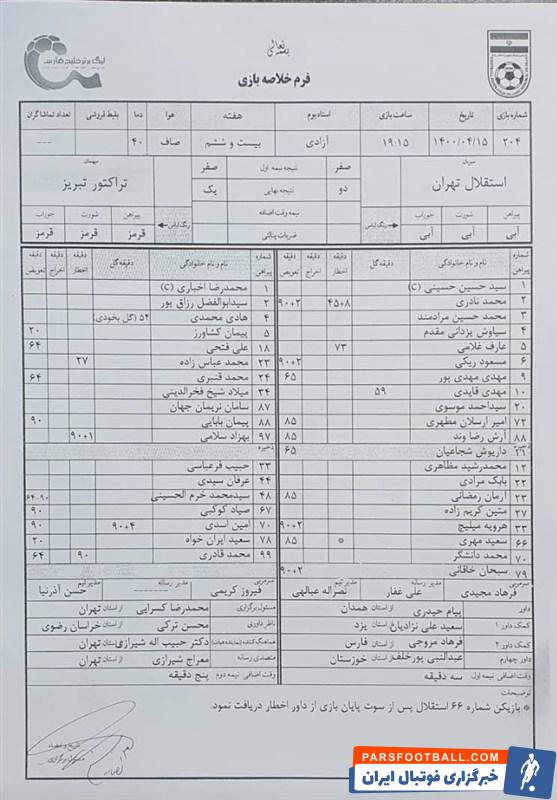 بسمه تعالی
لیگ برتر خلیج فارس
فرم خلاصه بازی
شماره بازی تاریخ ساعت بازی استادیوم هفته هوا دما بلیط فروشی تعداد تماشاگران
۲۰۴ ۱۴۰۰/۰۴/۱۵ ۱۹:۱۵ آزادی بیست و ششم صاف ۴۰ ---
میزبان صفر نتیجه نیمه اول صفر میهمان
استقلال تهران دو نتیجه نهایی یک تراکتور تبریز
نیمه وقت اضافه
پیراهن شورت جوراب رنگ لباس ضربات پنالتی رنگ لباس پیراهن شورت جوراب
آبی آبی آبی قرمز قرمز قرمز
شماره پیراهن نام و نام خانوادگی دقیقه گل دقیقه اخطار دقیقه اخراج دقیقه تعویض شماره پیراهن نام و نام خانوادگی دقیقه گل دقیقه اخطار دقیقه اخراج دقیقه تعویض
۱ سید حسین حسینی (C) ۱ محمدرضا اخباری (C)
۲ محمد نادری ۴۵+۸ ۹۰+۲ ۲ سیدابوالفضل رزاق پور
۳ محمد حسین مرادمند ۴ هادی محمدی ۵۴ (گل بخودی)
۴ سیاوش یزدانی مقدم ۵ پیمان کشاورز ۲۰
۵ عارف غلامی ۷۳ ۱۸ علی فتحی ۶۴
۶ مسعود ریگی ۹۰+۲ ۲۳ محمد عباس زاده ۲۷
۹ مهدی مهدی پور ۶۵ ۲۴ محمد قنبری ۶۴
۱۰ مهدی قایدی ۵۹ ۳۴ میلاد شیخ فخرالدینی
۲۰ سیداحمد موسوی ۸۷ سامان نریمان جهان
۷۲ امیر ارسلان مطهری ۸۵ ۸۸ پیمان بابایی ۹۰
۸۸ آرش رضا وند ۸۵ ۹۷ بهزاد سلامی ۹۰+۱
ذخیره داریوش شجاعیان ۶۵ ذخیره
۱۲ محمدرشید مظاهری ۳۳ حبیب فرعباسی
۲۲ بابک مرادی ۴۴ عرفان سیدی
۲۳ آرمان رمضانی ۸۵ ۴۸ سیدمحمد خرم الحسینی ۶۴-۹۰
۲۷ متین کریم زاده ۶۷ صیاد کوکبی ۹۰
۳۳ هرویه میلیچ ۹۰+۲ ۷۰ امین اسدی ۹۰+۴ ۹۰
۶۶ سعید مهری * ۸۵ ۷۸ سعید ایران خواه ۲۰
۷۰ محمد دانشگر ۹۹ محمد قادری ۹۰ ۶۴
۷۹ سبحان خاقانی ۹۰+۲
سرمربی فرهاد مجیدی مدیر رسانه علی غفار مدیر تیم نصراله عبدالهی سرمربی فیروز کریمی مدیر رسانه ------ مدیر تیم حسن آذرنیا
داور پیام حیدری از استان همدان مسئول برگزاری محمدرضا کسرایی از استان تهران
کمک داور ۱ سعید علی نژادیان از استان یزد ناظر داوری محسن ترکی از استان خراسان رضوی
کمک داور ۲ فرهاد مروجی از استان فارس هماهنگ کننده (نماینده هیات) دکتر حبیب اله شیرازی از استان تهران
داور چهارم عبدالنبی پورخلف از استان خوزستان متصدی رسانه معراج شیرازی از استان تهران
وقت اضافی نیمه اول سه دقیقه وقت اضافی نیمه دوم پنج دقیقه
توضیحات
* بازیکن شماره ۶۶ استقلال پس از سوت پایان بازی از داور اخطار دریافت نمود.
PARSFOOTBALL.COM
خبرگزاری فوتبال ایران